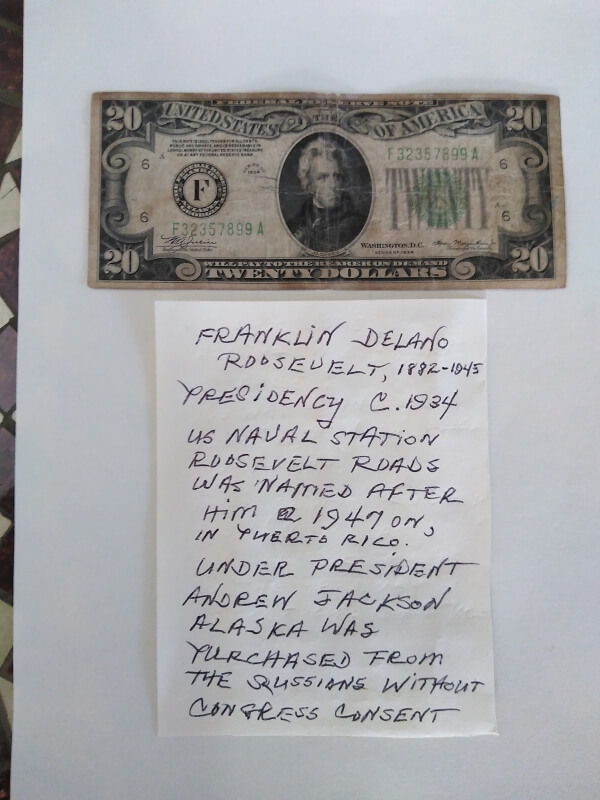 FEDERAL RESERVE NOTE
20 THE UNITED STATES OF AMERICA 20
F32357899A
6 6
F
6 6
F32357899A
WASHINGTON, D.C.
SERIES OF 1934
WILL PAY TO THE BEARER ON DEMAND
20 TWENTY DOLLARS 20
FRANKLIN DELANO
ROOSEVELT, 1882-1945
PRESIDENCY C. 1934
US NAVAL STATION
ROOSEVELT ROADS
WAS NAMED AFTER
HIM @ 1947 ON,
IN PUERTO RICO.
UNDER PRESIDENT
ANDREW JACKSON
ALASKA WAS
PURCHASED FROM
THE RUSSIANS WITHOUT
CONGRESS CONSENT